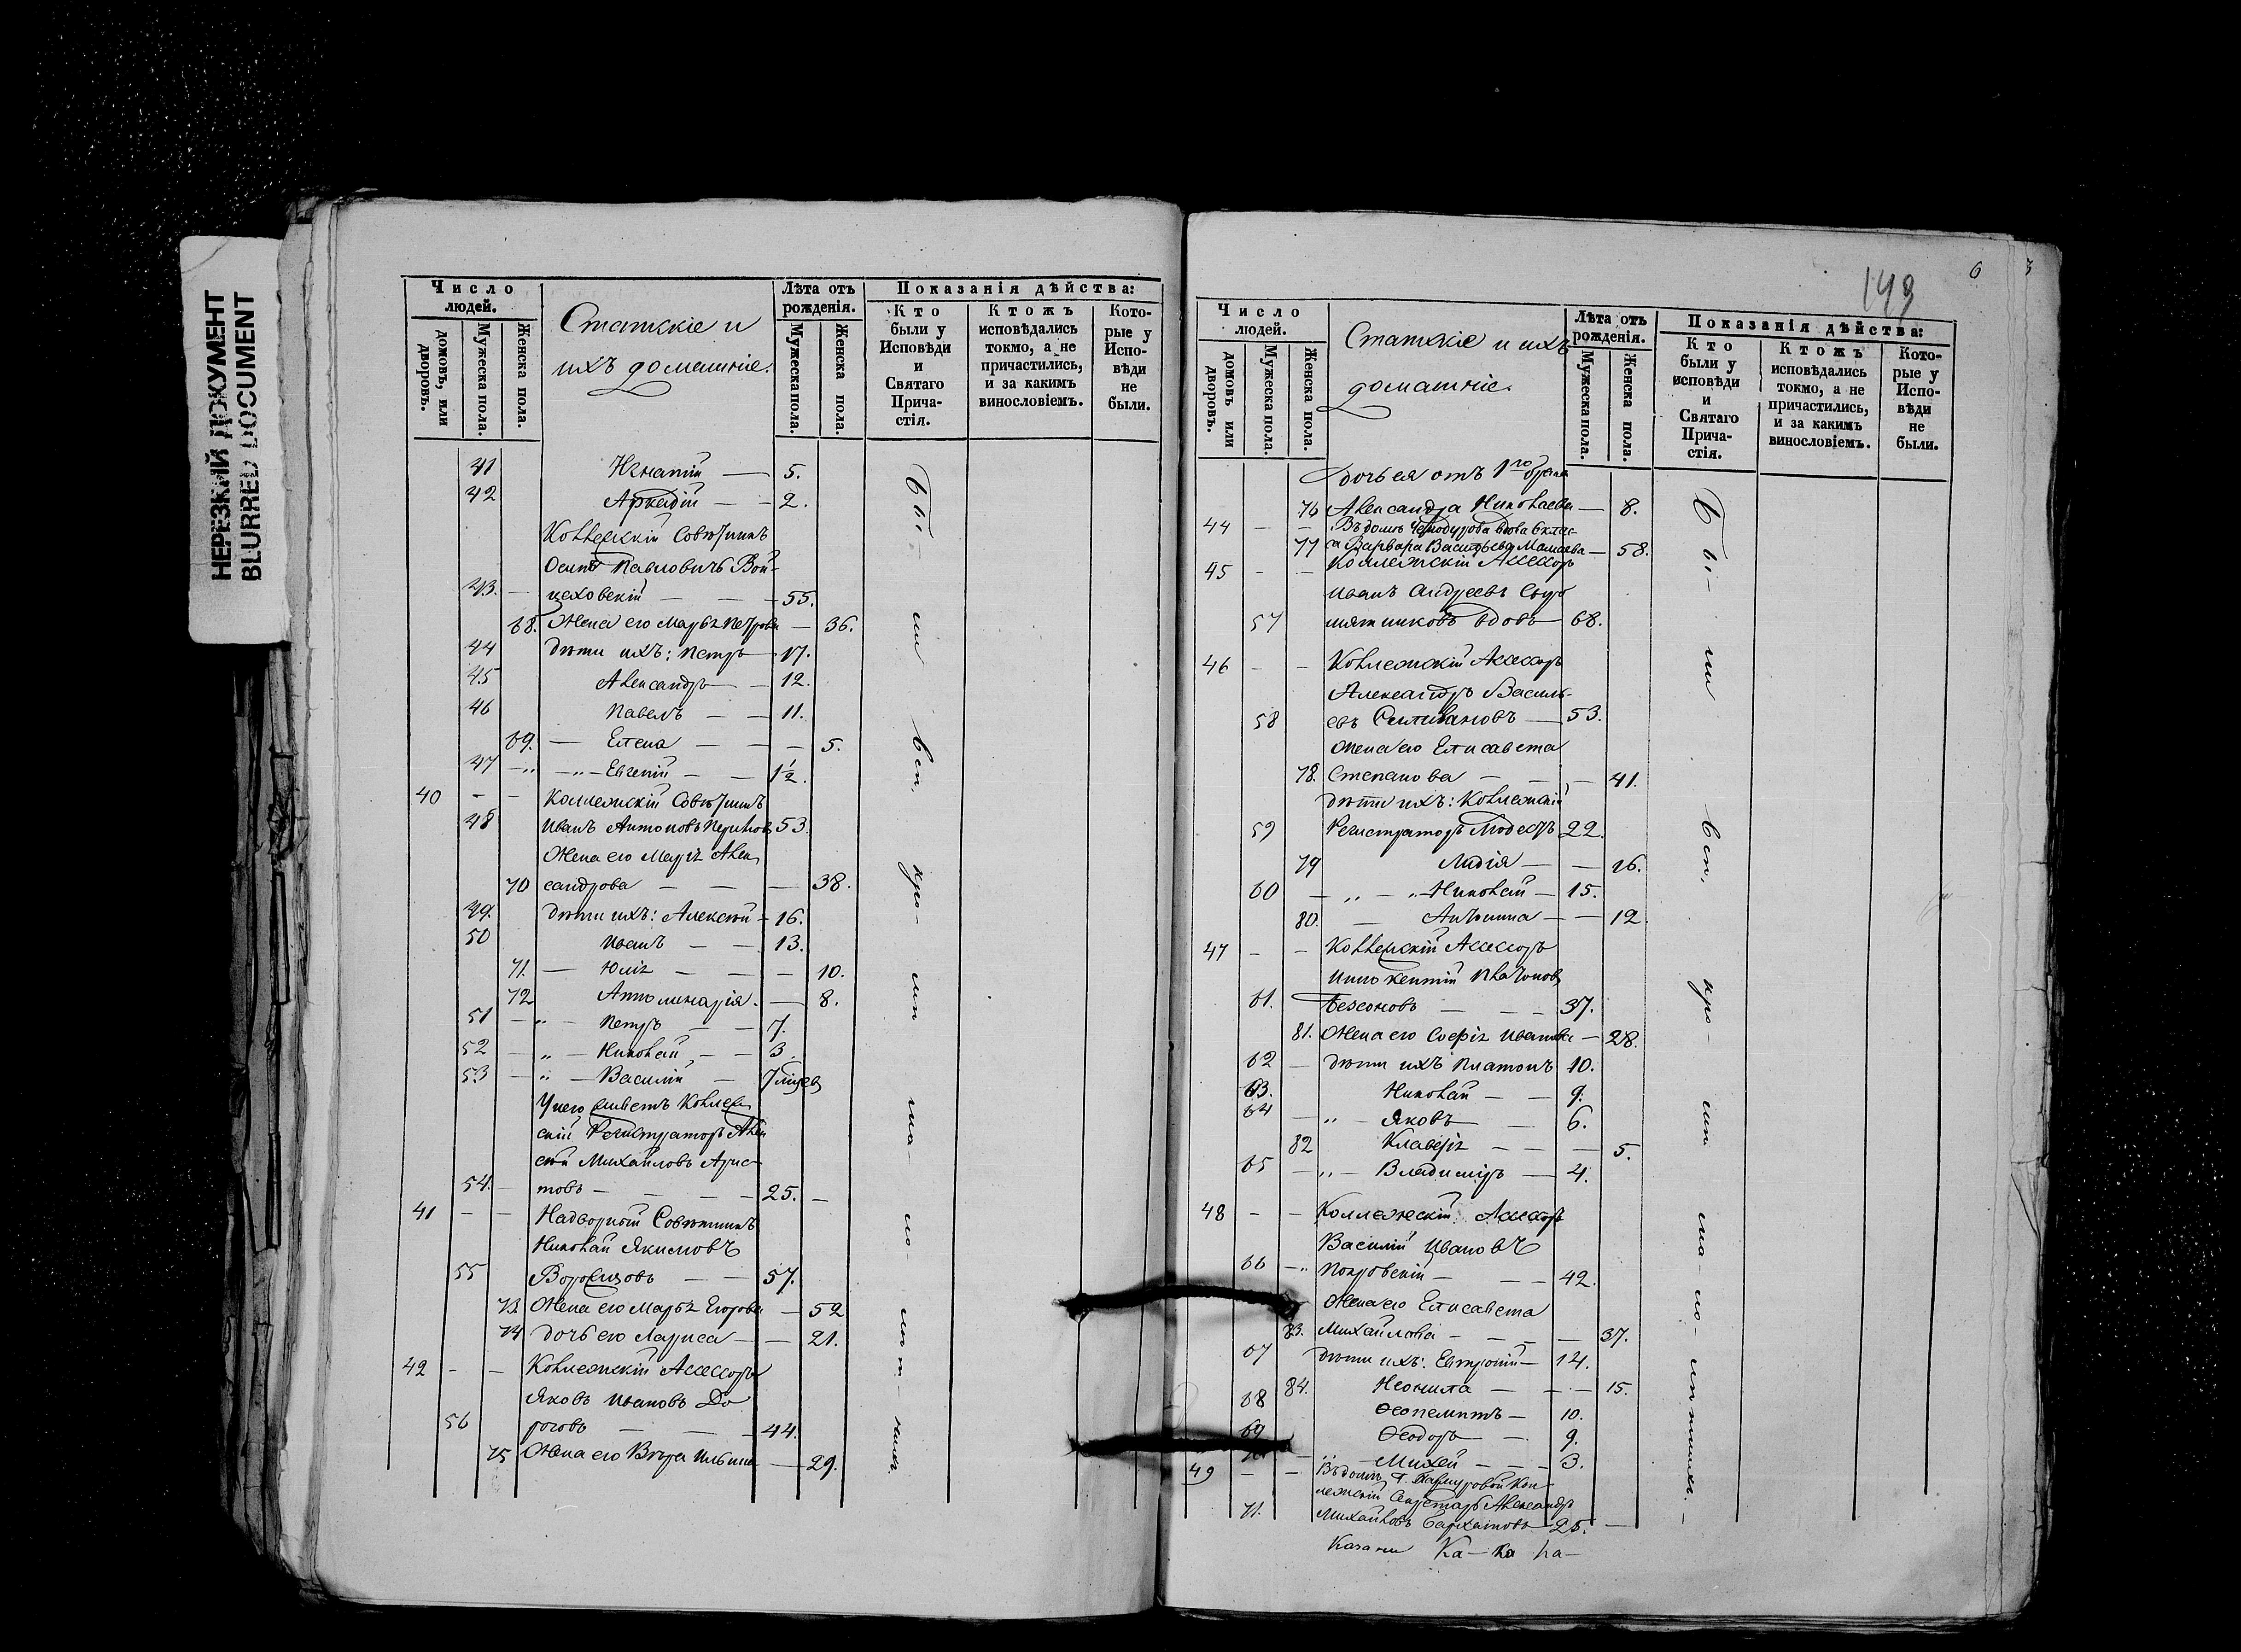 НЕРЕЗКИЙ ДОКУМЕНТ
BLURRED DOCUMENT
Число людей.
домовъ, или дворовъ.
Мужеска пола.
Женска пола.
Статскіе и
ихъ домашніе.
Лѣта отъ рожденія.
Мужеска пола.
Женска пола.
Показанія дѣйства:
Кто были у Исповѣди и Святаго Прича-стія.
Ктожъ исповѣдались токмо, а не причастились, и за какимъ винословіемъ.
Кото-рые у Испо-вѣди не были.
41 Игнатій — 5.
42 Аркадій — — 2.
Коллежскій Совѣтникъ
Осипъ Павловичъ Вой-
43. — цеховскій — — — 55.
68. Жена его Марья Петрова — 36.
44 дѣти ихъ: Петръ — 17.
45 Александръ — 12.
46 Павелъ — — 11.
69. — Елена — — — 5.
47 — „ — „ — Евгеній — — 1½.
40 — — Коллежскій Совѣтникъ
48 Иванъ Антоновъ 53.
Жена его Марія Алек
70 сандрова — — — 38.
49. дѣти ихъ: Алексѣй — 16.
50 Иванъ — — 13.
71. — Юлія — — — 10.
72 Апполинарія. — 8.
51 — „ — Петръ — — 7.
52 — „ — Николай — — 3.
53 — „ — Василій —
У него живетъ Коллеж
скій Регистраторъ Алек
сѣй Михайловъ Арис-
54. — товъ — — — — 25. —
41 — — Надворный Совѣтникъ
Николай Якимовъ
55 — — 57.
73. Жена его Марья Егорова — 52
74 дочь его Лариса — — 21.
42 — — Коллежскій Ассессоръ
Яковъ Ивановъ До
56 роговъ — — — 44.
75 Жена его Вѣра Ильина — 29.
Бы-
ли
вси,
кро-
мѣ
ма-
ло
лѣт-
нихъ.
149
6
3
Число людей.
домовъ или дворовъ.
Мужеска пола.
Женска пола.
Статскіе и ихъ
домашніе.
Лѣта отъ рожденія.
Мужеска пола.
Женска пола.
Показанія дѣйства:
Кто были у исповѣди и Святаго Прича-стія.
Ктожъ исповѣдались токмо, а не причастились, и за какимъ винословіемъ.
Кото-рые у Испо-вѣди не были.
Дочь ея отъ 1го брака
76 Александра Николаева — 8.
44 — — Въ домѣ вдова 6 клас-
77 са Варвара Васильева Мамаева — 58.
45 — — Коллежскій Ассессоръ
Иванъ Андреевъ Сыро
57 мятниковъ вдовъ — 68.
46 — — Коллежскій Ассессоръ
Александръ Василь-
58 евъ Селивановъ — 53.
Жена его Елисавета
78. Степанова — — — 41.
дѣти ихъ: Коллежскій
59 Регистраторъ Модестъ 22.
79 Лидія — — 16.
60 — „ — „ — Николай — 15.
80. — Антонина — — 12
47 — — Коллежскій Ассессоръ
Иннокентій Платоновъ
61. Безсоновъ — — — 37.
81. Жена его Софія Иванова — 28.
62 — дѣти ихъ Платонъ 10.
63. Николай — — 9.
64 — „ — Яковъ — 6.
82 Клавдія — — — 5.
65 — „ — Владиміръ — 4.
48 — — Коллежскій Ассессоръ
Василій Ивановъ
66 — „ Покровскій — — — 42.
Жена его Елисавета
83. Михайлова — — — — 37.
67 дѣти ихъ: Евтропій — 14.
84. Неонила — — — 15.
68 Ѳеопемптъ — 10.
69 Ѳеодоръ — 9.
70 — Михей — — — 3.
49 — — Въ домѣ Г. Кол-
лежскій Секретарь Александръ
71. Михайловъ Бархатовъ — 25. —
Казани Ка — ка ка —
Бы-
ли
вси,
кро-
мѣ
ма-
ло-
лѣтнихъ. —